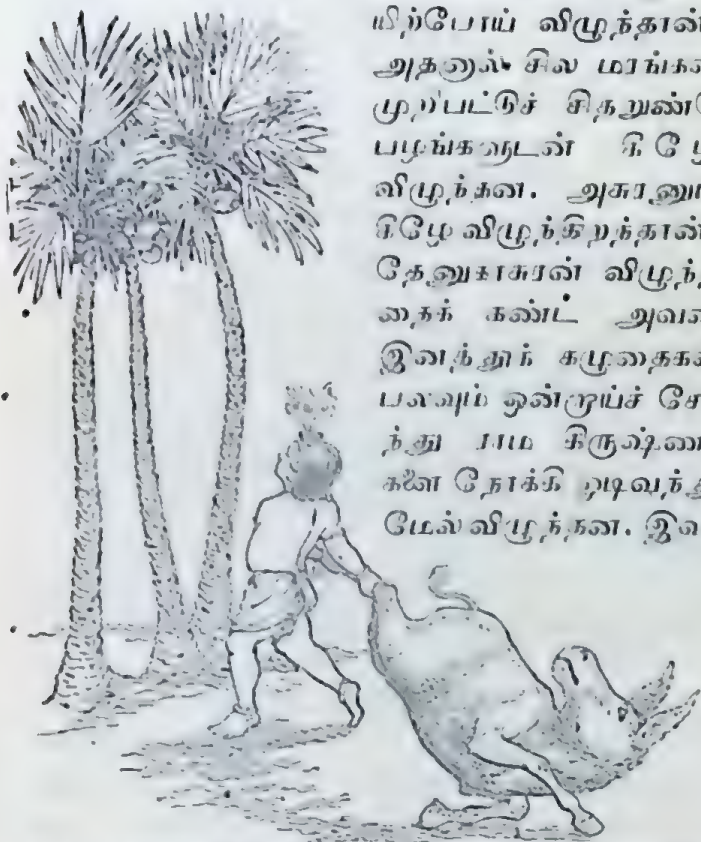 யிற்போய் விழுந்தான்
அதனால் சில மரங்கள்
முறிபட்டுச் சிதறுண்டு
பழங்களுடன் கீழே
விழுந்தன. அசுரனும்
கீழே விழுந்திறந்தான்
தேனுகாசுரன் விழுந்த
தைக் கண்ட அவன்
இனத்துக் கழுதைகள்
பலவும் ஒன்றாய்ச் சேர்
ந்து ராம கிருஷ்ணர்
களை நோக்கி ஓடிவந்து
மேல் விழுந்தன. இவ